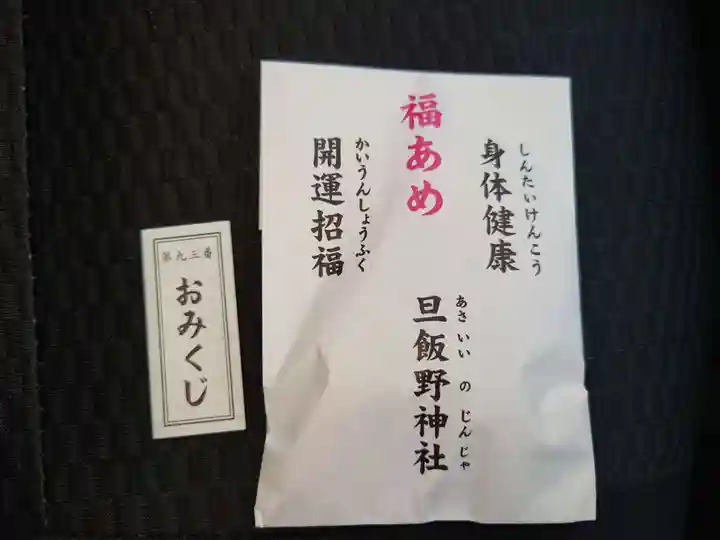 身体健康
しんたいけんこう
福あめ
旦飯野神社
あさいいのじんじゃ
開運招福
かいうんしょうふく
第九三番
おみくじ